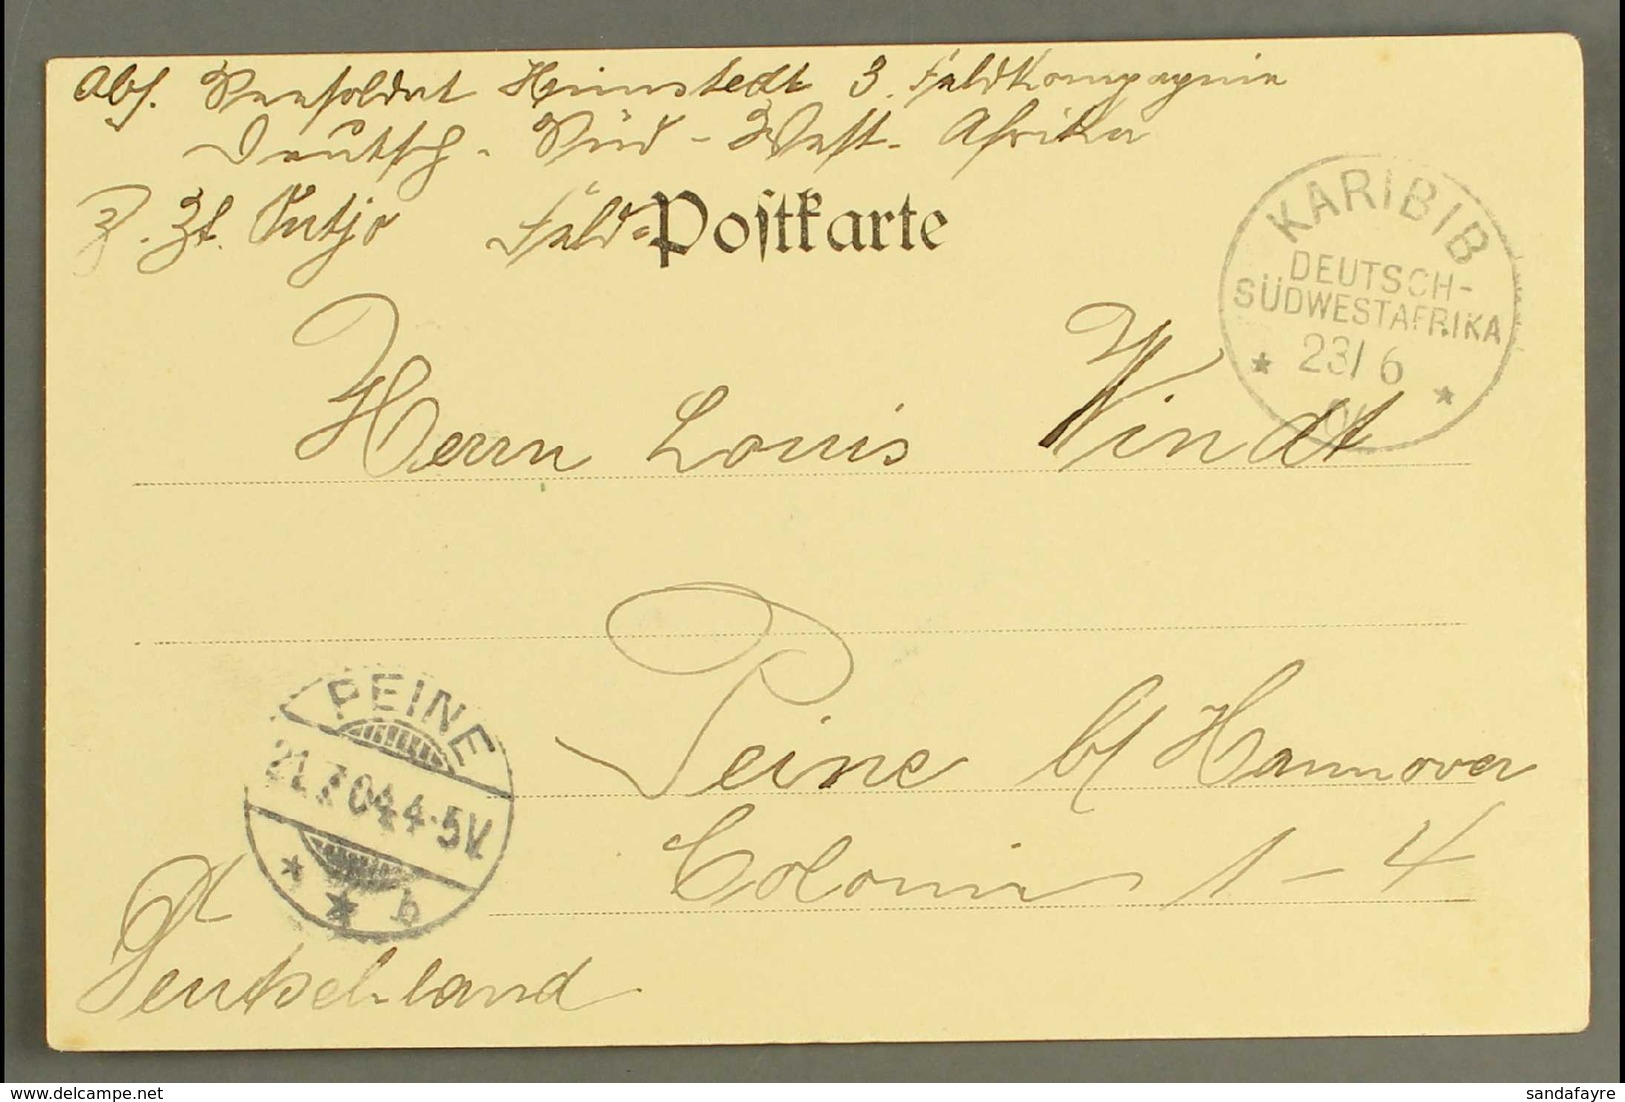 Abs. Seesoldat Heimstedt 3. Feldkompagnie
Deutsch-Süd-West-Afrika
Z. Zt. Outjo Feld=Postkarte
KARIBIB
DEUTSCH-
SÜDWESTAFRIKA
23/6
Herrn Louis Windt
Peine b/ Hannover
PEINE
21.7.04.4-5V.
b
Colonie 1-4
Deutschland
sandafayre